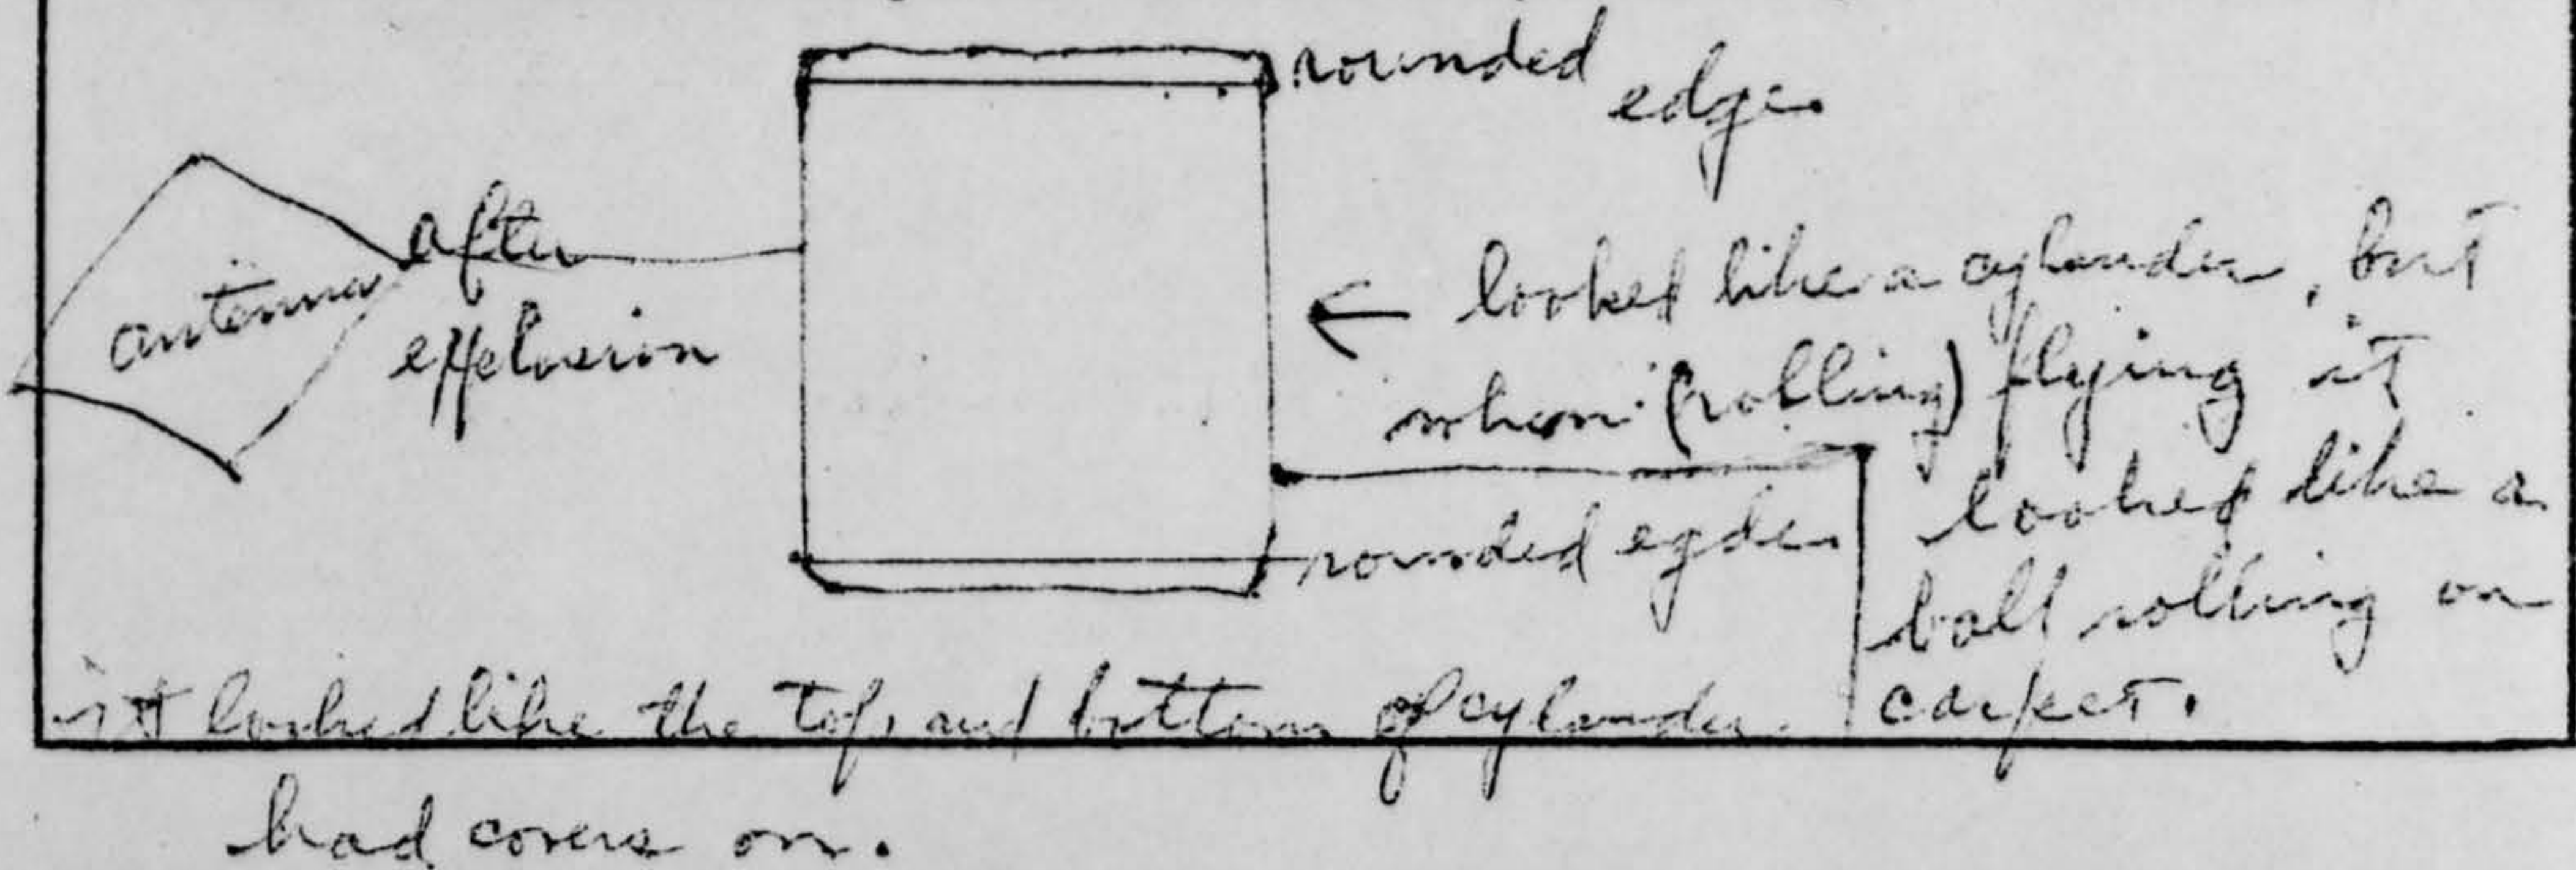 rounded
edge.
after
antenna
explosion
looked like a cylander, but
when (rolling) flying it
looked like a
ball rolling on
carpet.
rounded egde
it looked like the top and bottom of cylander
had covers on.